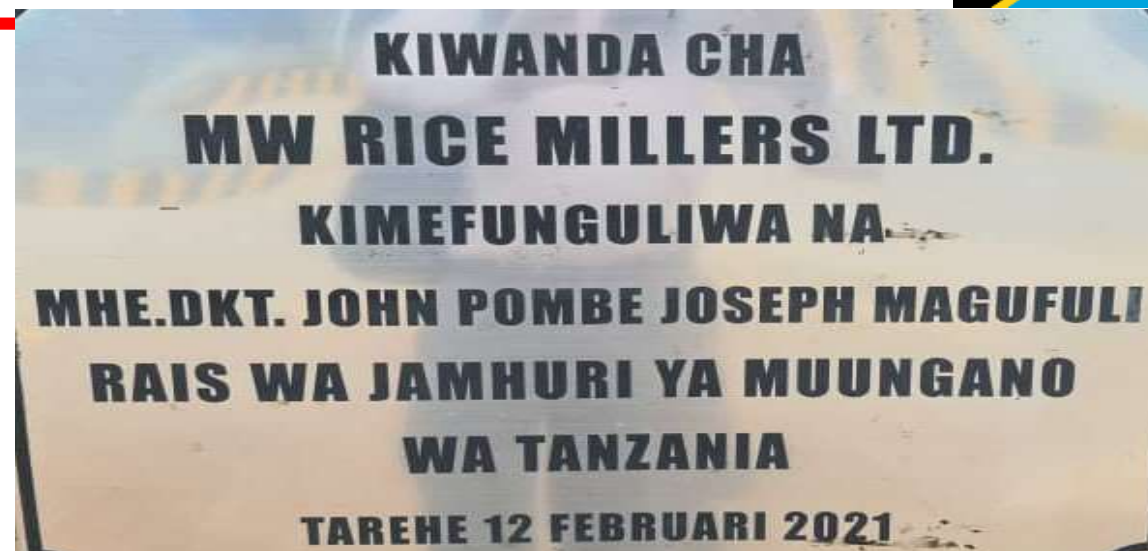 KIWANDA CHA
MW RICE MILLERS LTD.
KIMEFUNGULIWA NA
MHE.DKT. JOHN POMBE JOSEPH MAGUFULI
RAIS WA JAMHURI YA MUUNGANO
WA TANZANIA
TAREHE 12 FEBRUARI 2021